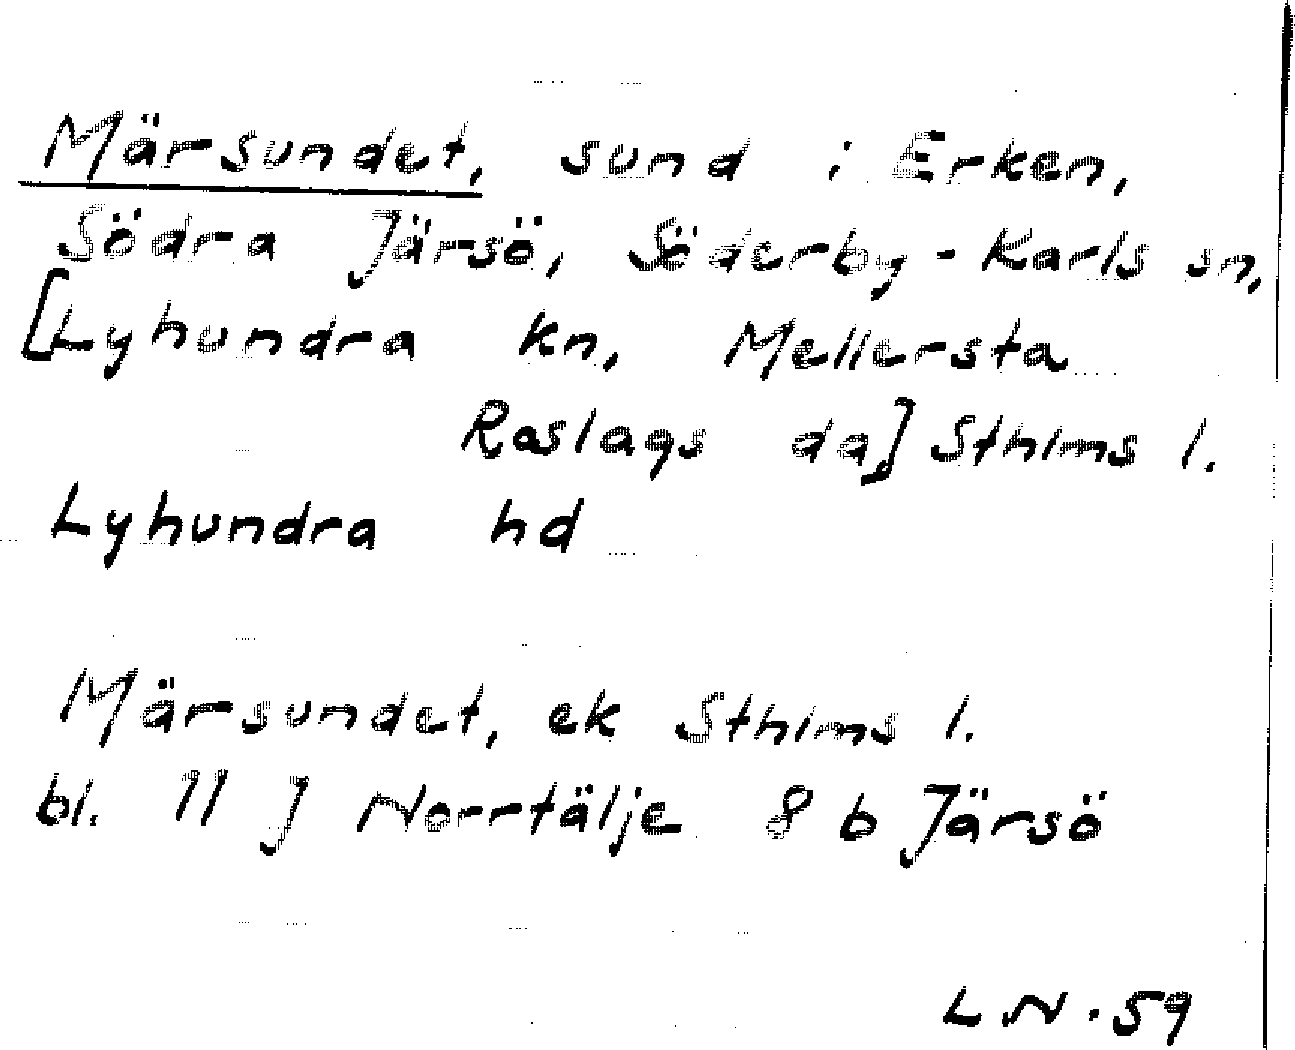 Märsundet, sund i Erken,
Södra Järsö, Söderby-Karls sn,
[Lyhundra kn, Mellersta
Roslags da] Sthlms l.
Lyhundra hd
Märsundet, ek Sthlms l.
bl. 11 J Norrtälje 8 b Järsö
L N. 59